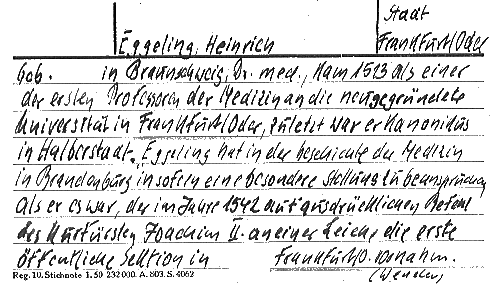 Stadt
Eggeling, Heinrich Frankfurt/Oder
geb. in Braunschweig, Dr. med., kam 1513 als einer
der ersten Professoren der Medizin an die neugegründete
Universität in Frankfurt/Oder, zuletzt war er Kanonikus
in Halberstadt. Eggeling hat in der Geschichte der Medizin
in Brandenburg insofern eine besondere Stellung zu beanspruchen
als er es war, der im Jahre 1542 auf ausdrücklichen Befehl
des Kurfürsten Joachim II. an einer Leiche die erste
öffentliche Sektion in Frankfurt/O. vornahm.
Reg. 10. Stichnote 1. 50 232000. A. 803. S. 4062